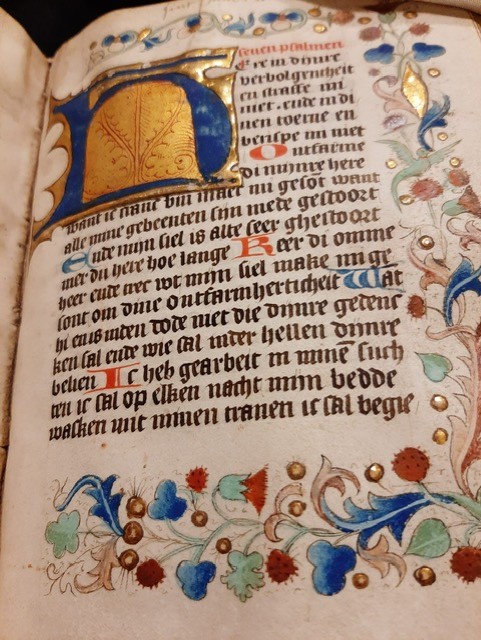 seuen psalmen
H Ere in dinre
verbolgentheit
en straffe mi
niet. ende in di
nen toerne en
berispe mi niet
Ontfarme
di mijnre here
want ic cranc bin maect mi gesont want
alle mine gebeenten sijn mede gestoort
Ende mijn siel is alte seer ghestoort
mer du here hoe lange Keer di omme
heer ende trec wt mijn siel make mi ge
sont om dine ontfarmherticheit Wat
hi en is inden dode niet die dijnre gedenc
ken sal ende wie sal inder hellen dijnre
belien Ic heb gearbeit in minē such
ten ic sal op elken nacht mijn bedde
wasken mit minen tranen ic sal begie